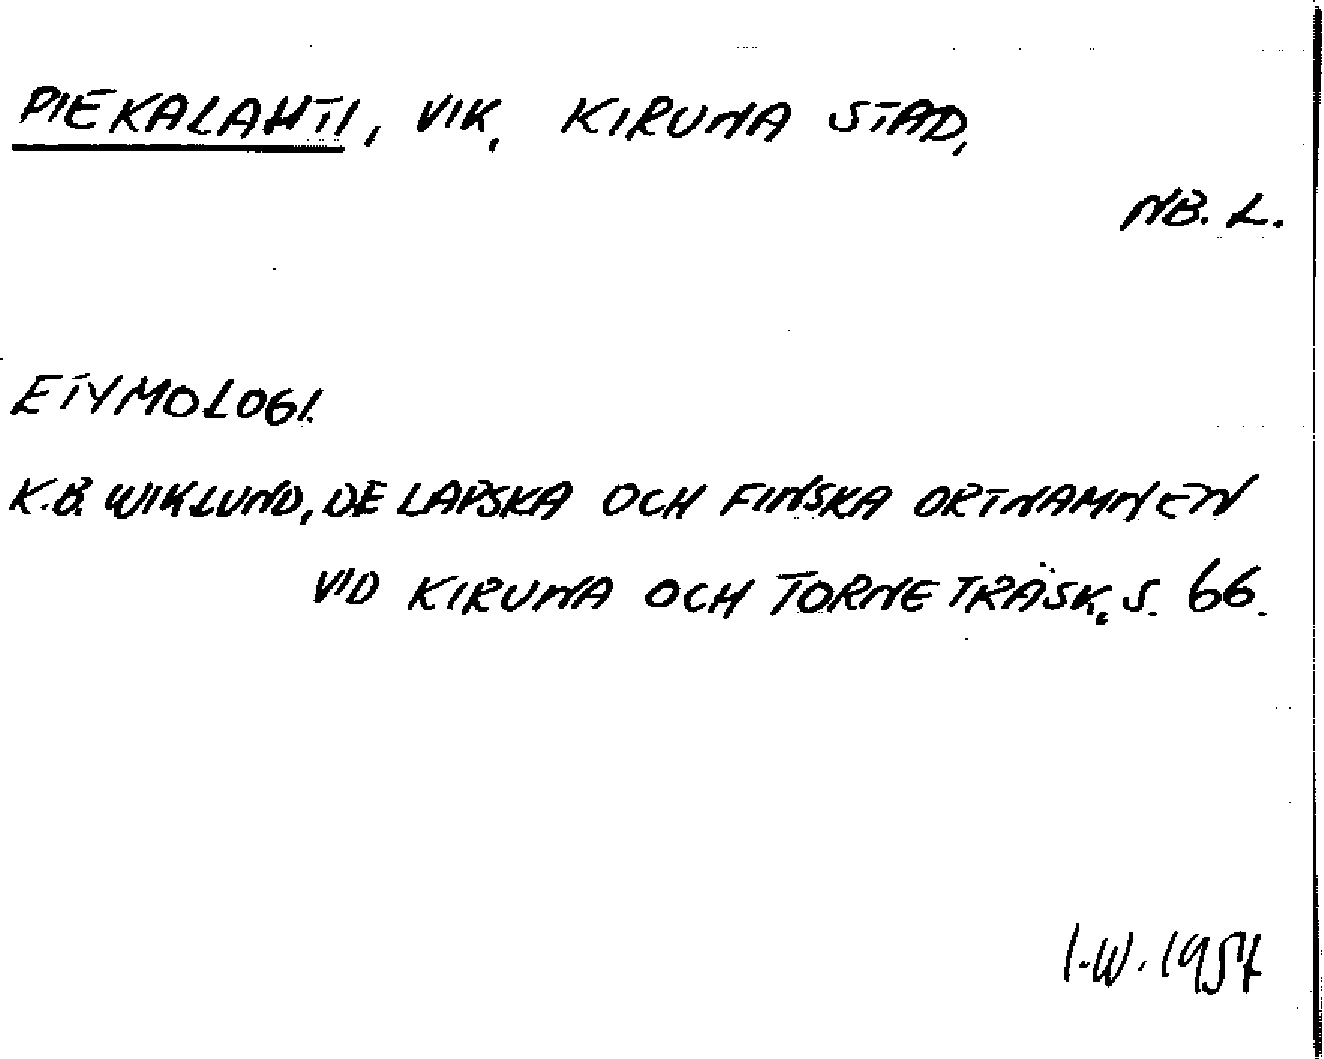 PIEKALAHTI, VIK, KIRUNA STAD,
NB. L.
ETYMOLOGI.
K.B. WIKLUND, DE LAPSKA OCH FINSKA ORTNAMNEN
VID KIRUNA OCH TORNE TRÄSK, S. 66.
I.W. 1957